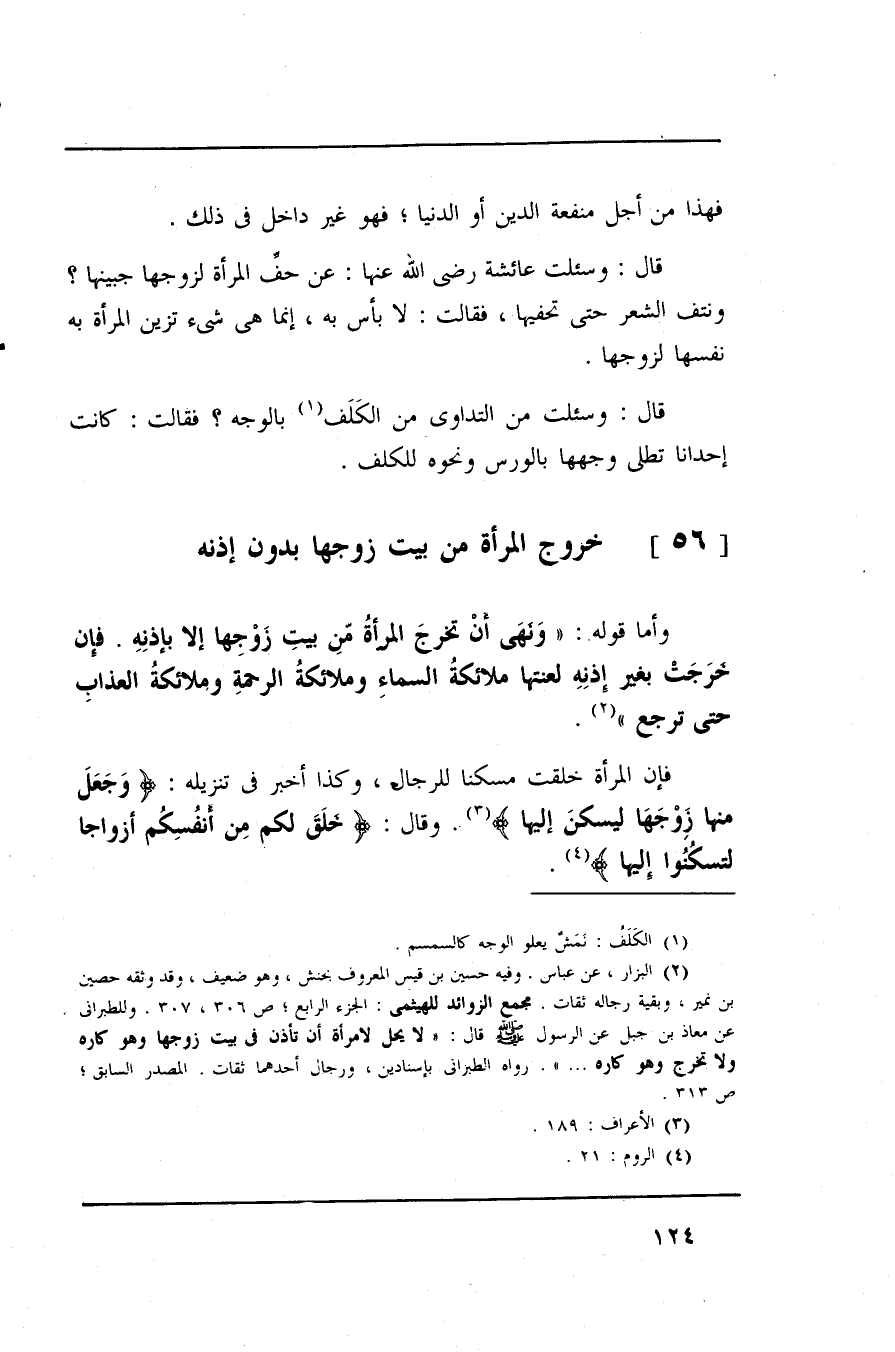 فهذا من أجل منفعة الدين أو الدنيا ؛ فهو غير داخل فى ذلك .
قال : وسئلت عائشة رضى الله عنها : عن حفِّ المرأة لزوجها جبينها ؟
ونتف الشعر حتى تحفيها ، فقالت : لا بأس به ، إنما هى شىء تزين المرأة به
نفسها لزوجها .
قال : وسئلت من التداوى من الكَلَف(١) بالوجه ؟ فقالت : كانت
إحدانا تطلى وجهها بالورس ونحوه للكلف .
[ ٥٦ ] خروج المرأة من بيت زوجها بدون إذنه
وأما قوله : « وَنَهَى أَنْ تخرجَ المرأةُ مّنِ بيتِ زَوْجِها إلا بإذنِهِ . فإن
خَرَجَتْ بغير إِذنِهِ لعنتها ملائكةُ السماءِ وملائكةُ الرحمةِ وملائكةُ العذابِ
حتى ترجع »(٢) .
فإن المرأة خلقت مسكنا للرجال ، وكذا أخبر فى تنزيله : ﴿ وَجَعَلَ
منها زَوْجَهَا ليسكنَ إليها ﴾(٣) . وقال : ﴿ خَلَقَ لكم مِن أَنفُسِكُم أزواجا
لتسكُنُوا إِليها ﴾(٤) .
(١) الكَلَفُ : نَمَشٌ يعلو الوجه كالسمسم .
(٢) البزار ، عن عباس . وفيه حسين بن قيس المعروف بحنش ، وهو ضعيف ، وقد وثقه حصين
بن نمير ، وبقية رجاله ثقات . مجمع الزوائد للهيثمى : الجزء الرابع ؛ ص ٣٠٦ ، ٣٠٧ . وللطبرانى .
عن معاذ بن جبل عن الرسول ﷺ قال : « لا يحل لامرأة أن تأذن فى بيت زوجها وهو كاره
ولا تخرج وهو كاره ... » . رواه الطبرانى بإسنادين ، ورجال أحدهما ثقات . المصدر السابق ؛
ص ٣١٣ .
(٣) الأعراف : ١٨٩ .
(٤) الروم : ٢١ .
١٢٤